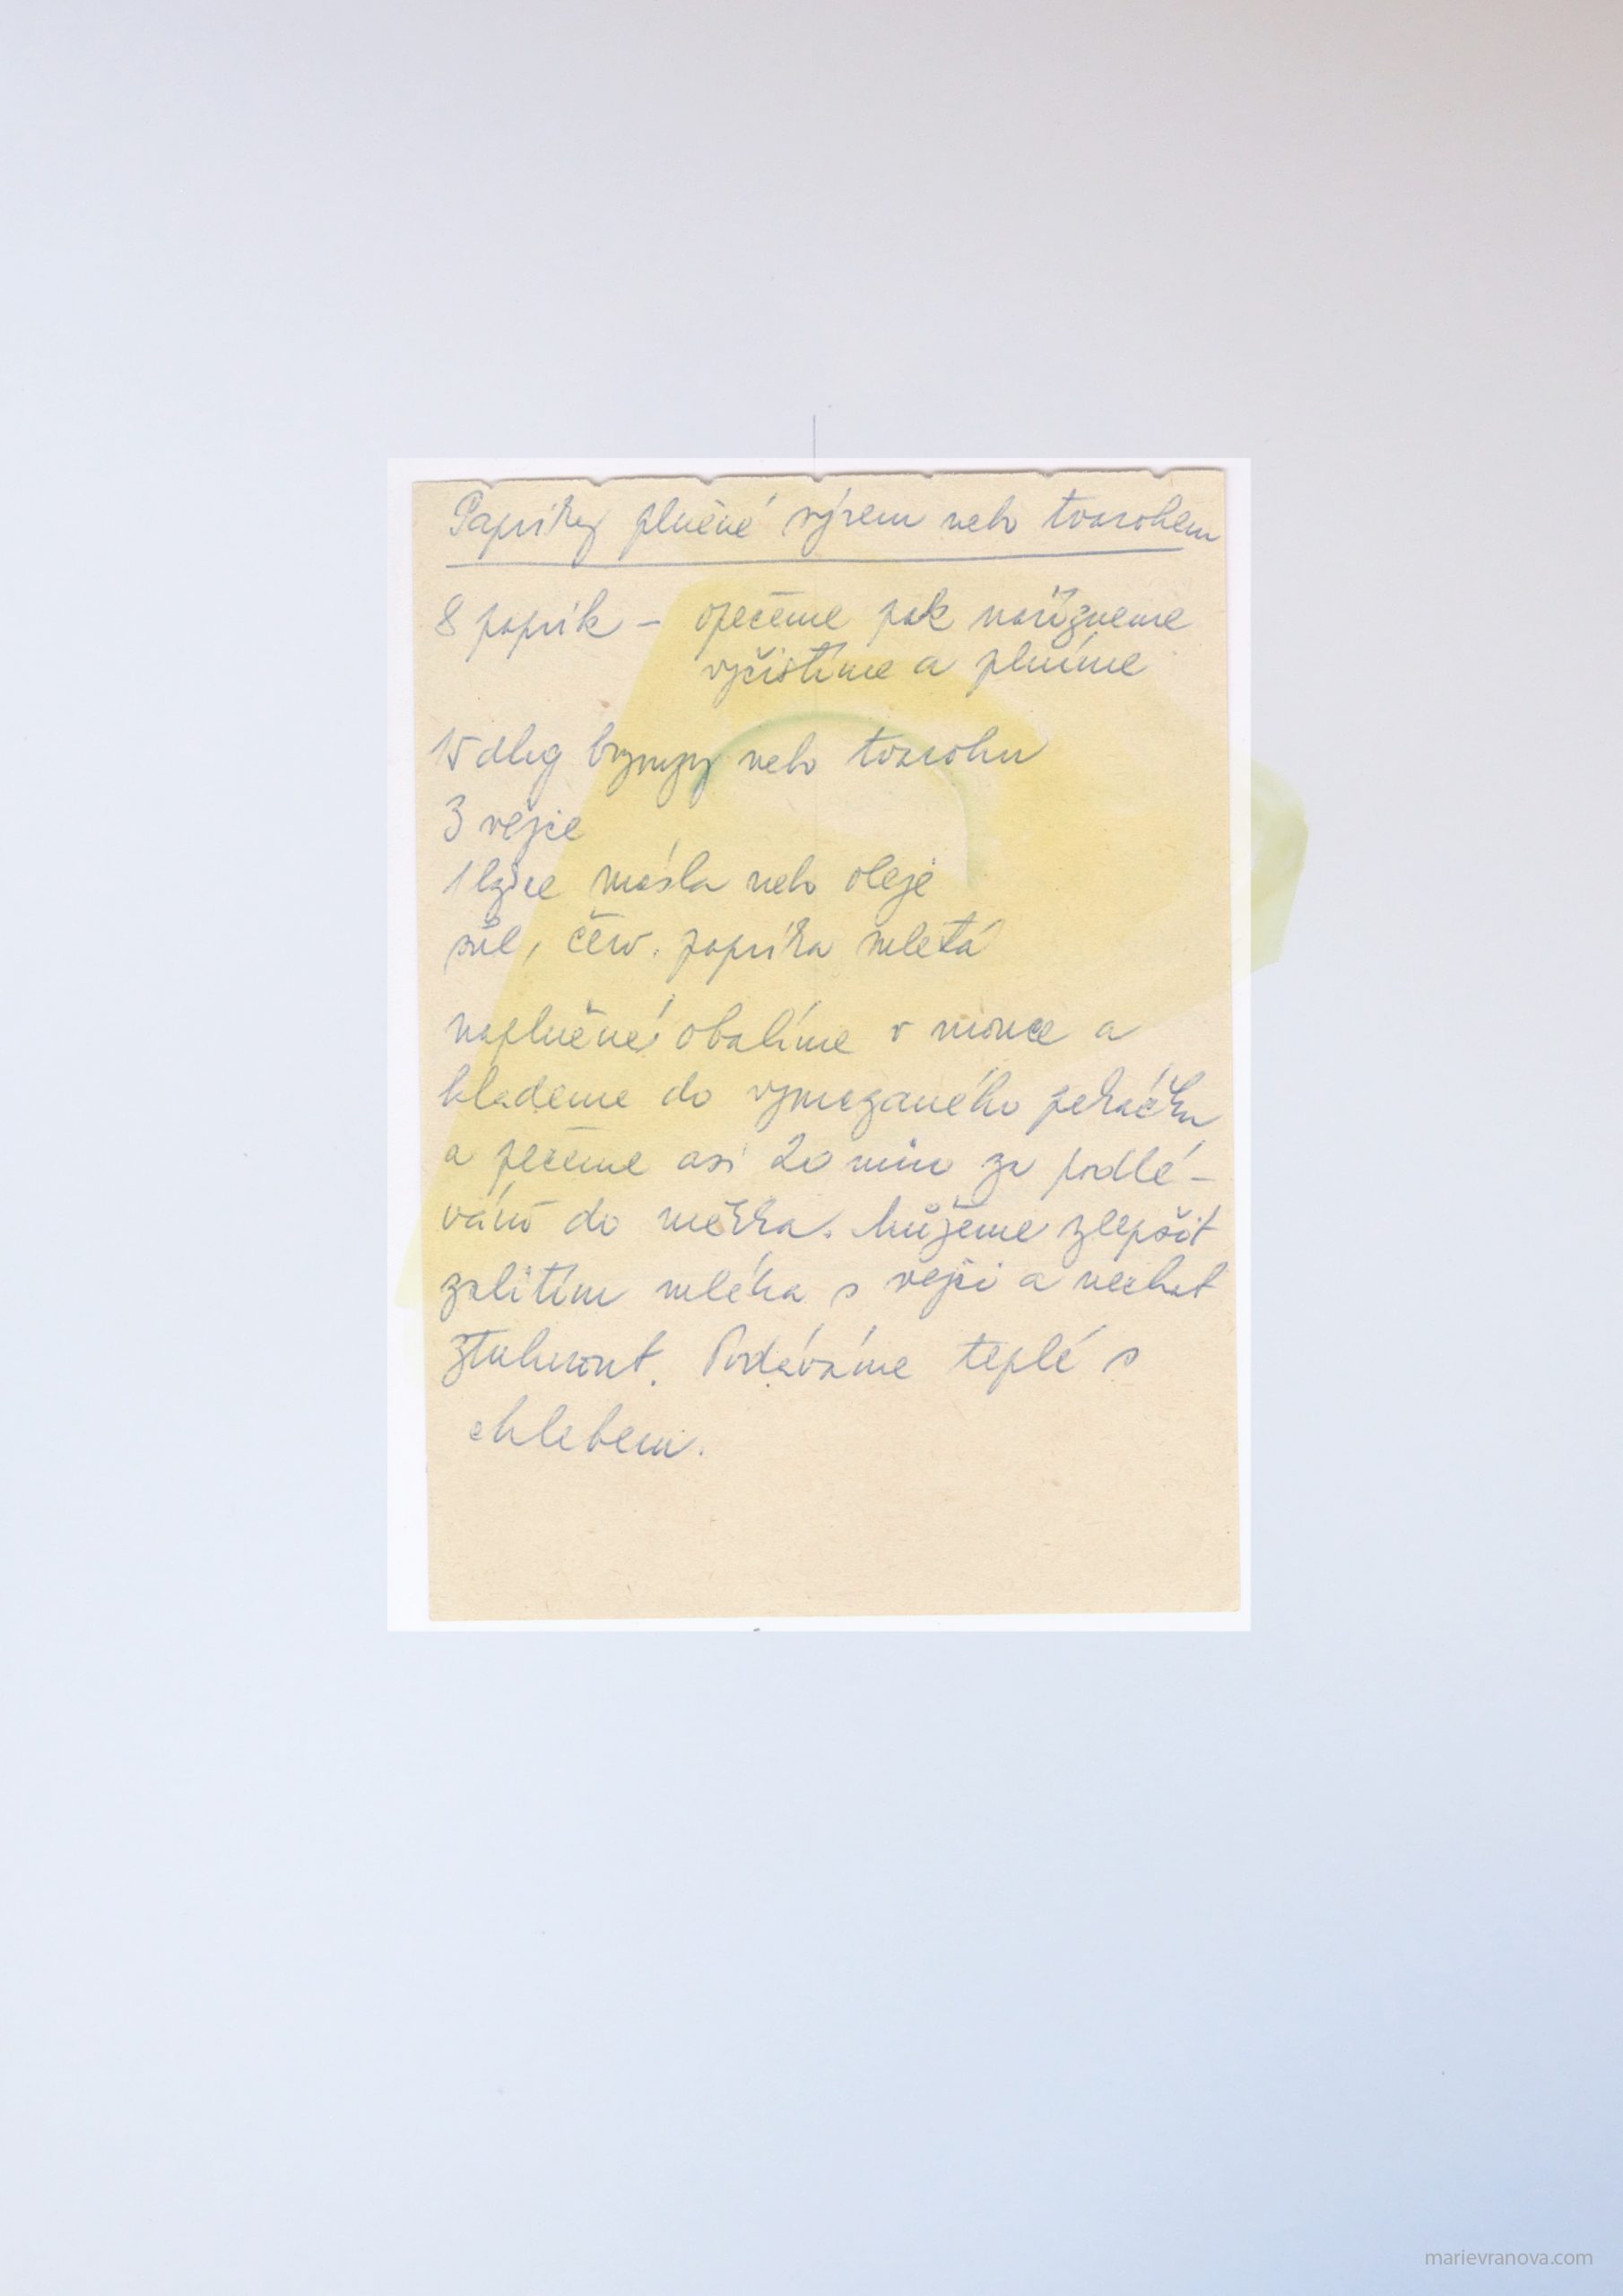 Papriky plněné sýrem nebo tvarohem
8 paprik – opečeme pak nařízneme
vyčistíme a plníme
15 dkg brynzy nebo tvarohu
3 vejce
1 lžíce másla nebo oleje
sůl, červ. paprika mletá
naplněné obalíme v mouce a
klademe do vymazaného pekáčku
a pečeme asi 20 min za podlé-
vání do měkka. Můžeme zlepšit
zalitím mléka s vejci a nechat
ztuhnout. Podáváme teplé s
chlebem.
marievranova.com